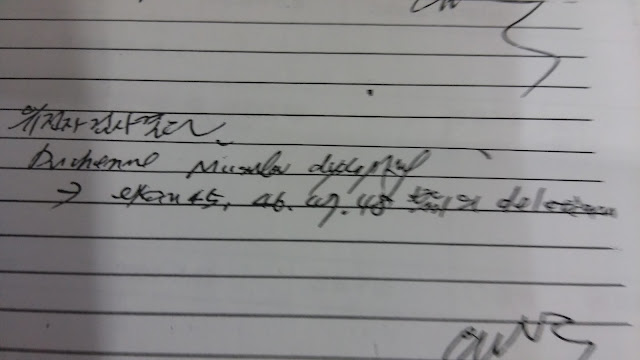 유전자검사결과
Duchenne Muscular dystrophy
→ exon 45, 46. 47. 48 부위의 deletion